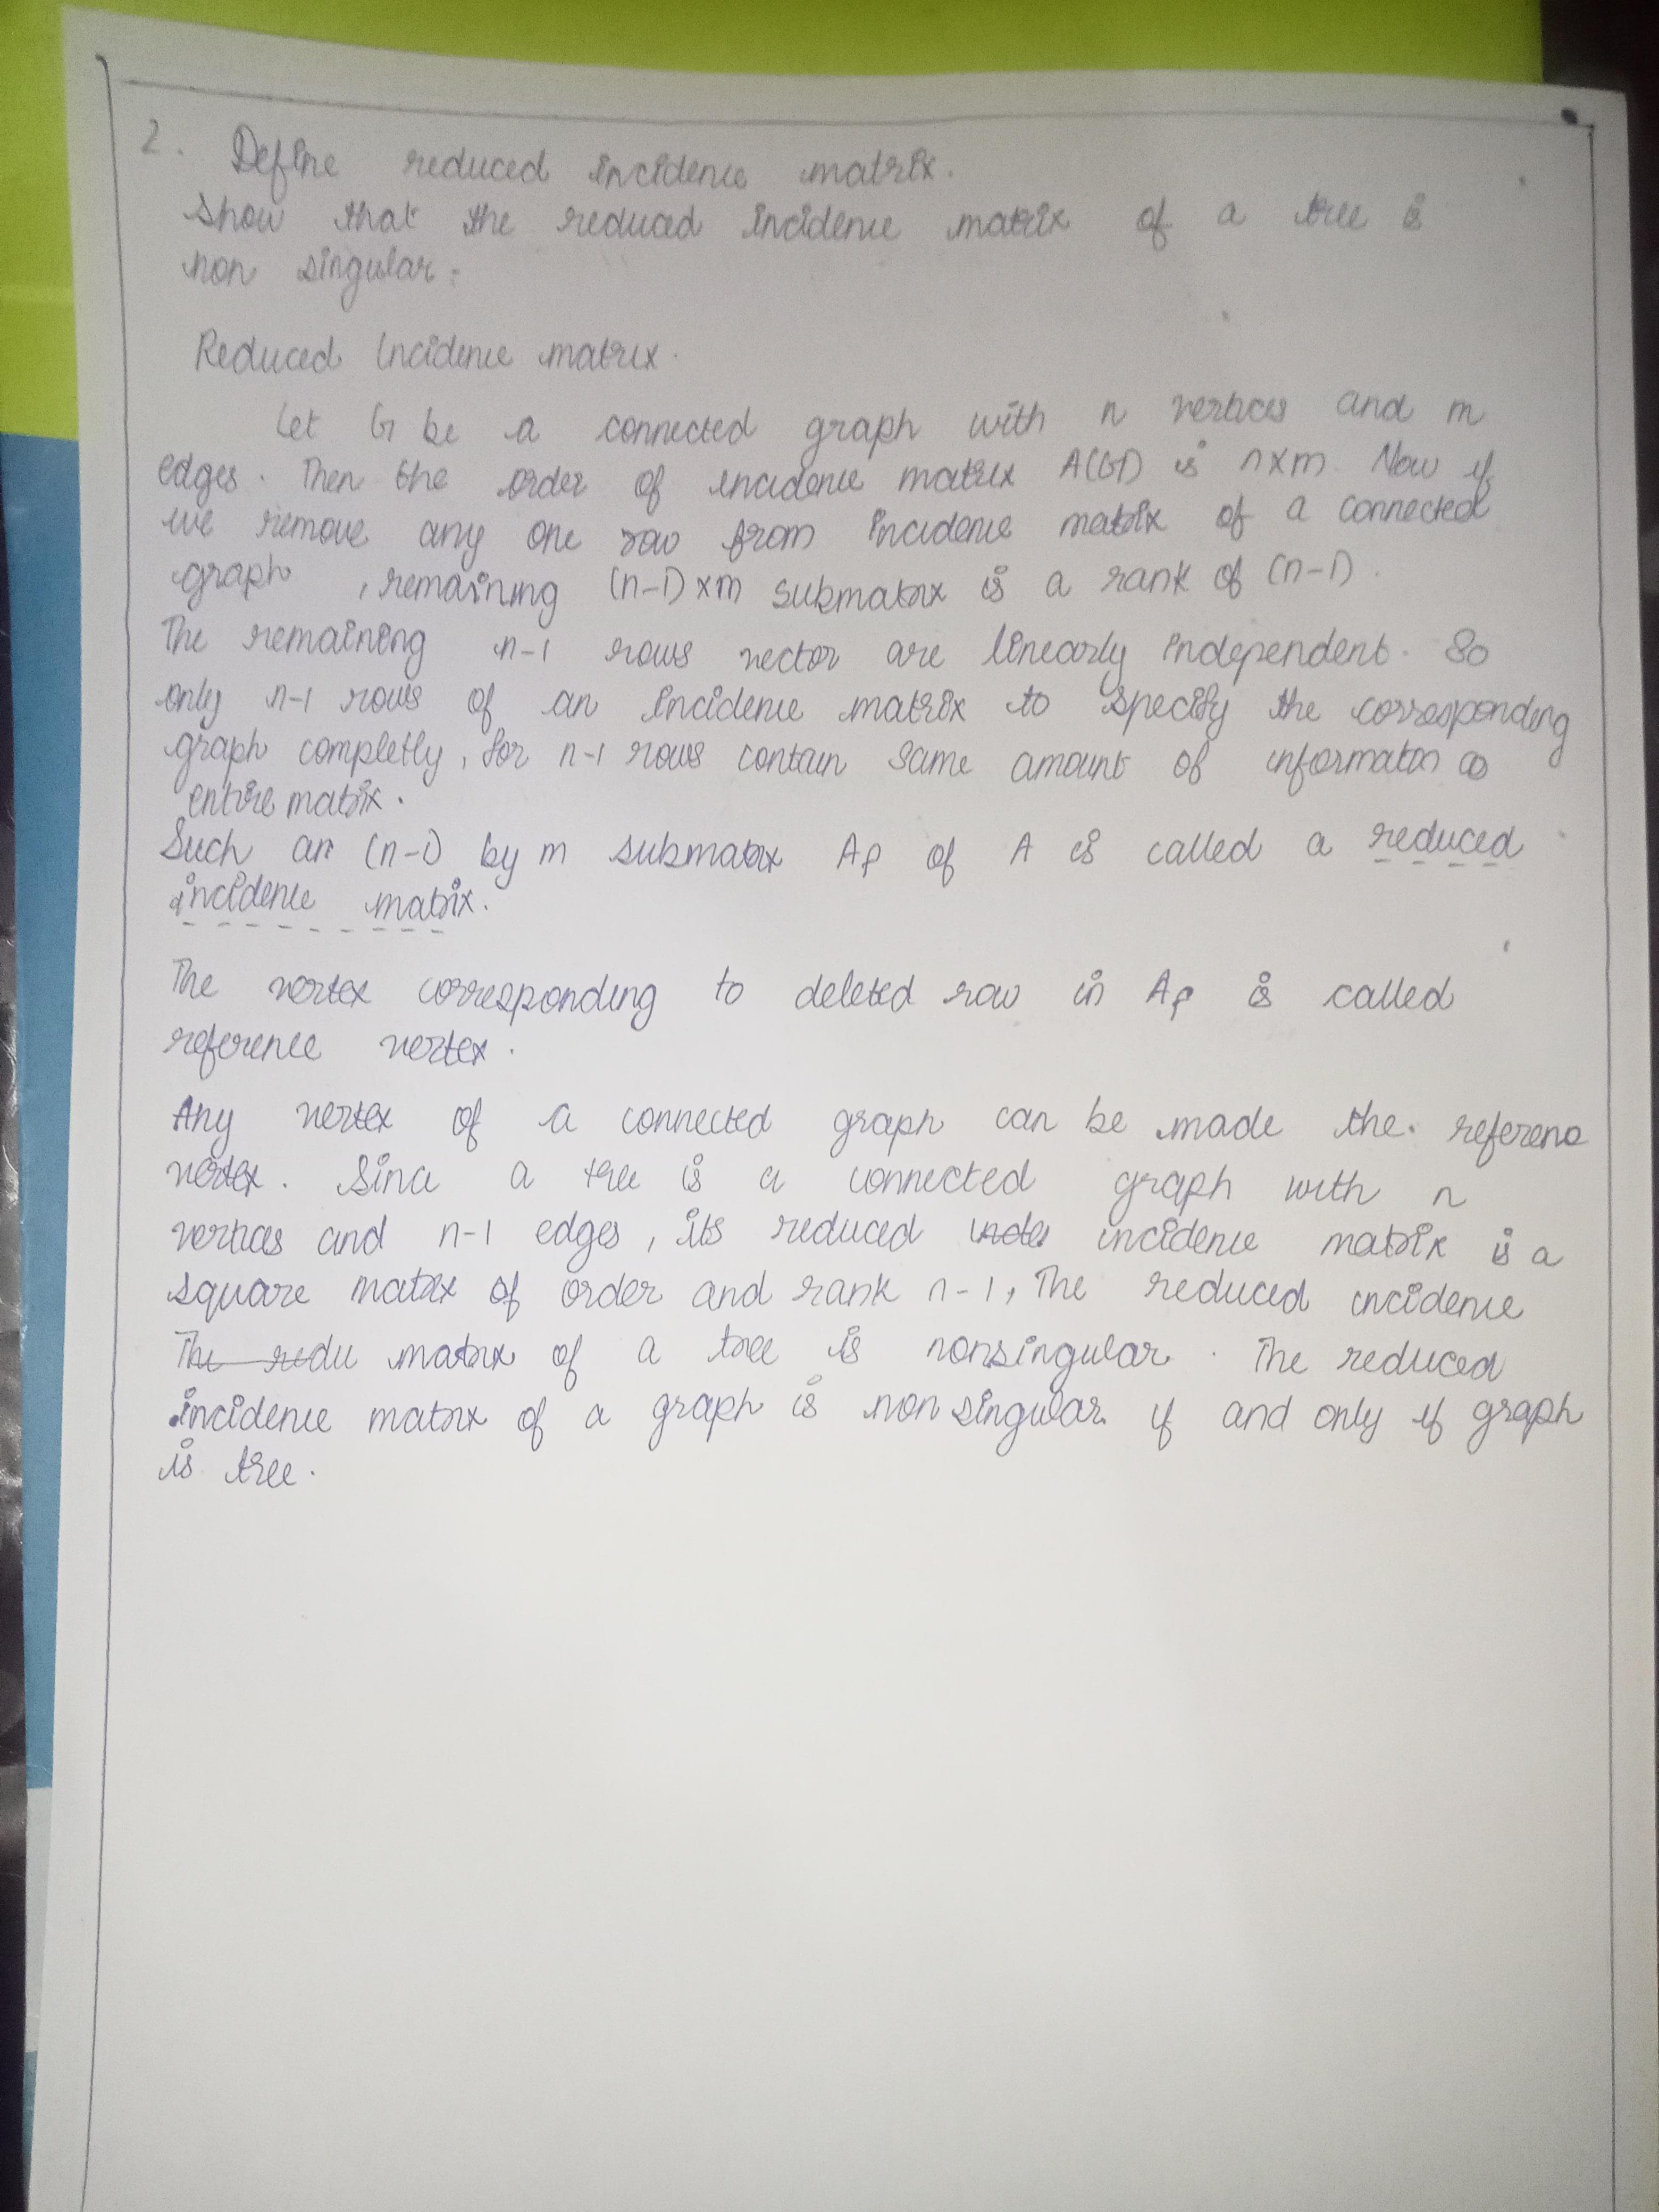 2. Define reduced incidence matrix.
Show that the reduced incidence matrix of a tree is
non singular.
Reduced Incidence matrix.
Let G be a connected graph with n vertices and m
edges. Then the order of incidence matrix A(G) is n×m. Now if
we remove any one row from incidence matrix of a connected
graph , remaining (n-1)×m submatrix is a rank of (n-1).
The remaining n-1 rows vector are linearly independent. So
only n-1 rows of an incidence matrix to specify the corresponding
graph completly, for n-1 rows contain same amount of information as
entire matrix.
Such an (n-1) by m submatrix Af of A is called a reduced
incidence matrix.
The vertex corresponding to deleted row in Af is called
reference vertex.
Any vertex of a connected graph can be made the referenc
vertex. Since a tree is a connected graph with n
vertices and n-1 edges, its reduced incidence matrix is a
square matrix of order and rank n-1, The reduced incidence
The redu matrix of a tree is nonsingular. The reduced
incidence matrix of a graph is non singular if and only if graph
is tree.